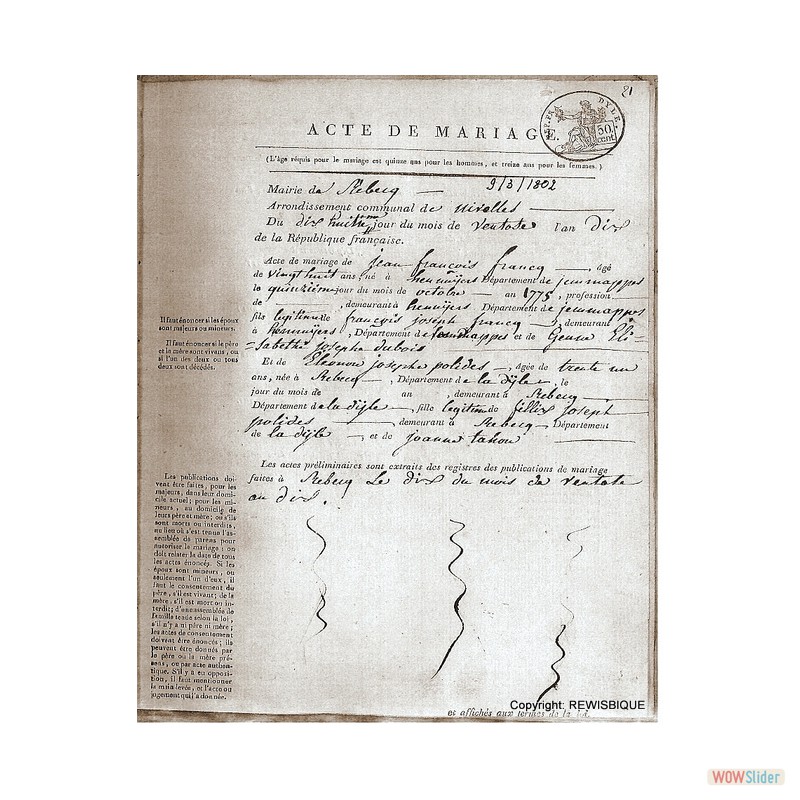 81
DEP. DE LA DYLE.
50 cent.
ACTE DE MARIAGE.
(L'âge réquis pour le mariage est quinze ans pour les hommes, et treize ans pour les femmes.)
Mairie de Rebecq — 9/3/1802
Arrondissement communal de nivelles
Du dix huitieme jour du mois de ventose l'an Dix
de la République française.
Acte de mariage de jean françois francq —, âgé
de vingt huit ans, né à hennuijers Département de jemmappes
le quinzieme jour du mois de octobre — an 1775, profession
de —, demeurant à hennuijers Département de jemmappes
fils legitime de françois joseph francq —, demeurant
à hennuijers, Département de jemmappes et de Genne Eli-
sabethe josephe dubois
Et de Eleonore josephe polides —, âgée de trente un
ans, née à Rebecq —, Département de la dijle —, le
jour du mois de an , demeurant à Rebecq —
Département de la dijle —, fille legitime de fellix joseph
polides — demeurant à Rebecq — Département
de la dijle —, et de joanne tahon
Les actes préliminaires sont extraits des registres des publications de mariage
faites à Rebecq Le dix du mois de ventose
an dix.
Il faut énoncer si les époux
sont majeurs ou mineurs.
Il faut énoncer si le père
et la mère sont vivans, ou
si l'un des deux ou tous
deux sont décédés.
Les publications doi-
vent être faites, pour les
majeurs, dans leur domi-
cile actuel; pour les mi-
neurs, au domicile de
leurs père et mère; ou s'ils
sont morts ou interdits,
au lieu où s'est tenue l'as-
semblée de parens pour
autoriser le mariage: on
doit relater la date de tous
les actes énoncés. Si les
époux sont mineurs, ou
seulement l'un d'eux, il
faut le consentement du
père, s'il est vivant; de la
mère, s'il est mort ou in-
terdit; d'une assemblée de
famille tenue selon la loi,
s'il n'y a ni père ni mère;
les actes de consentement
doivent être énoncés; ils
peuvent être donnés par
le père ou la mère pré-
sens, ou par acte authen-
tique. S'il y a eu opposi-
tion, il faut mentionner
la main levée, et l'acte ou
jugement qui l'a donnée.
et affichés aux termes de la loi.
Copyright: REWISBIQUE
WOWSlider